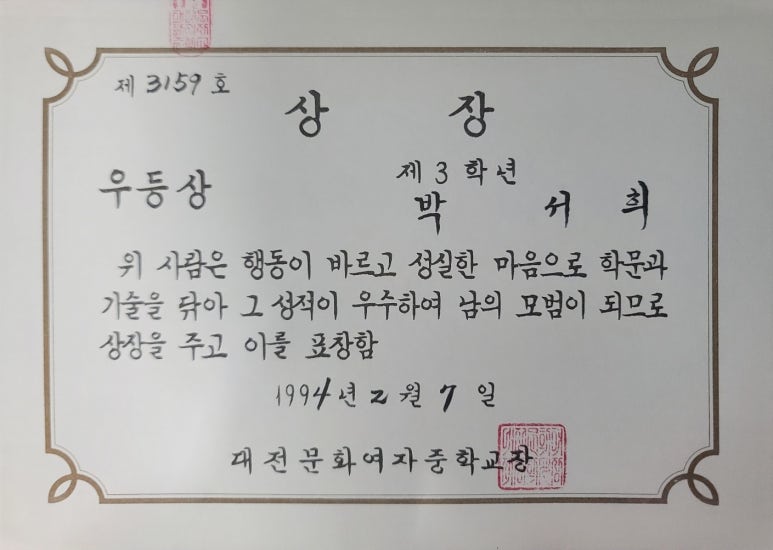 제 3159 호
상 장
우등상
제 3 학년
박 서 희
위 사람은 행동이 바르고 성실한 마음으로 학문과
기술을 닦아 그 성적이 우수하여 남의 모범이 되므로
상장을 주고 이를 표창함
1994년 2월 7일
대전문화여자중학교장